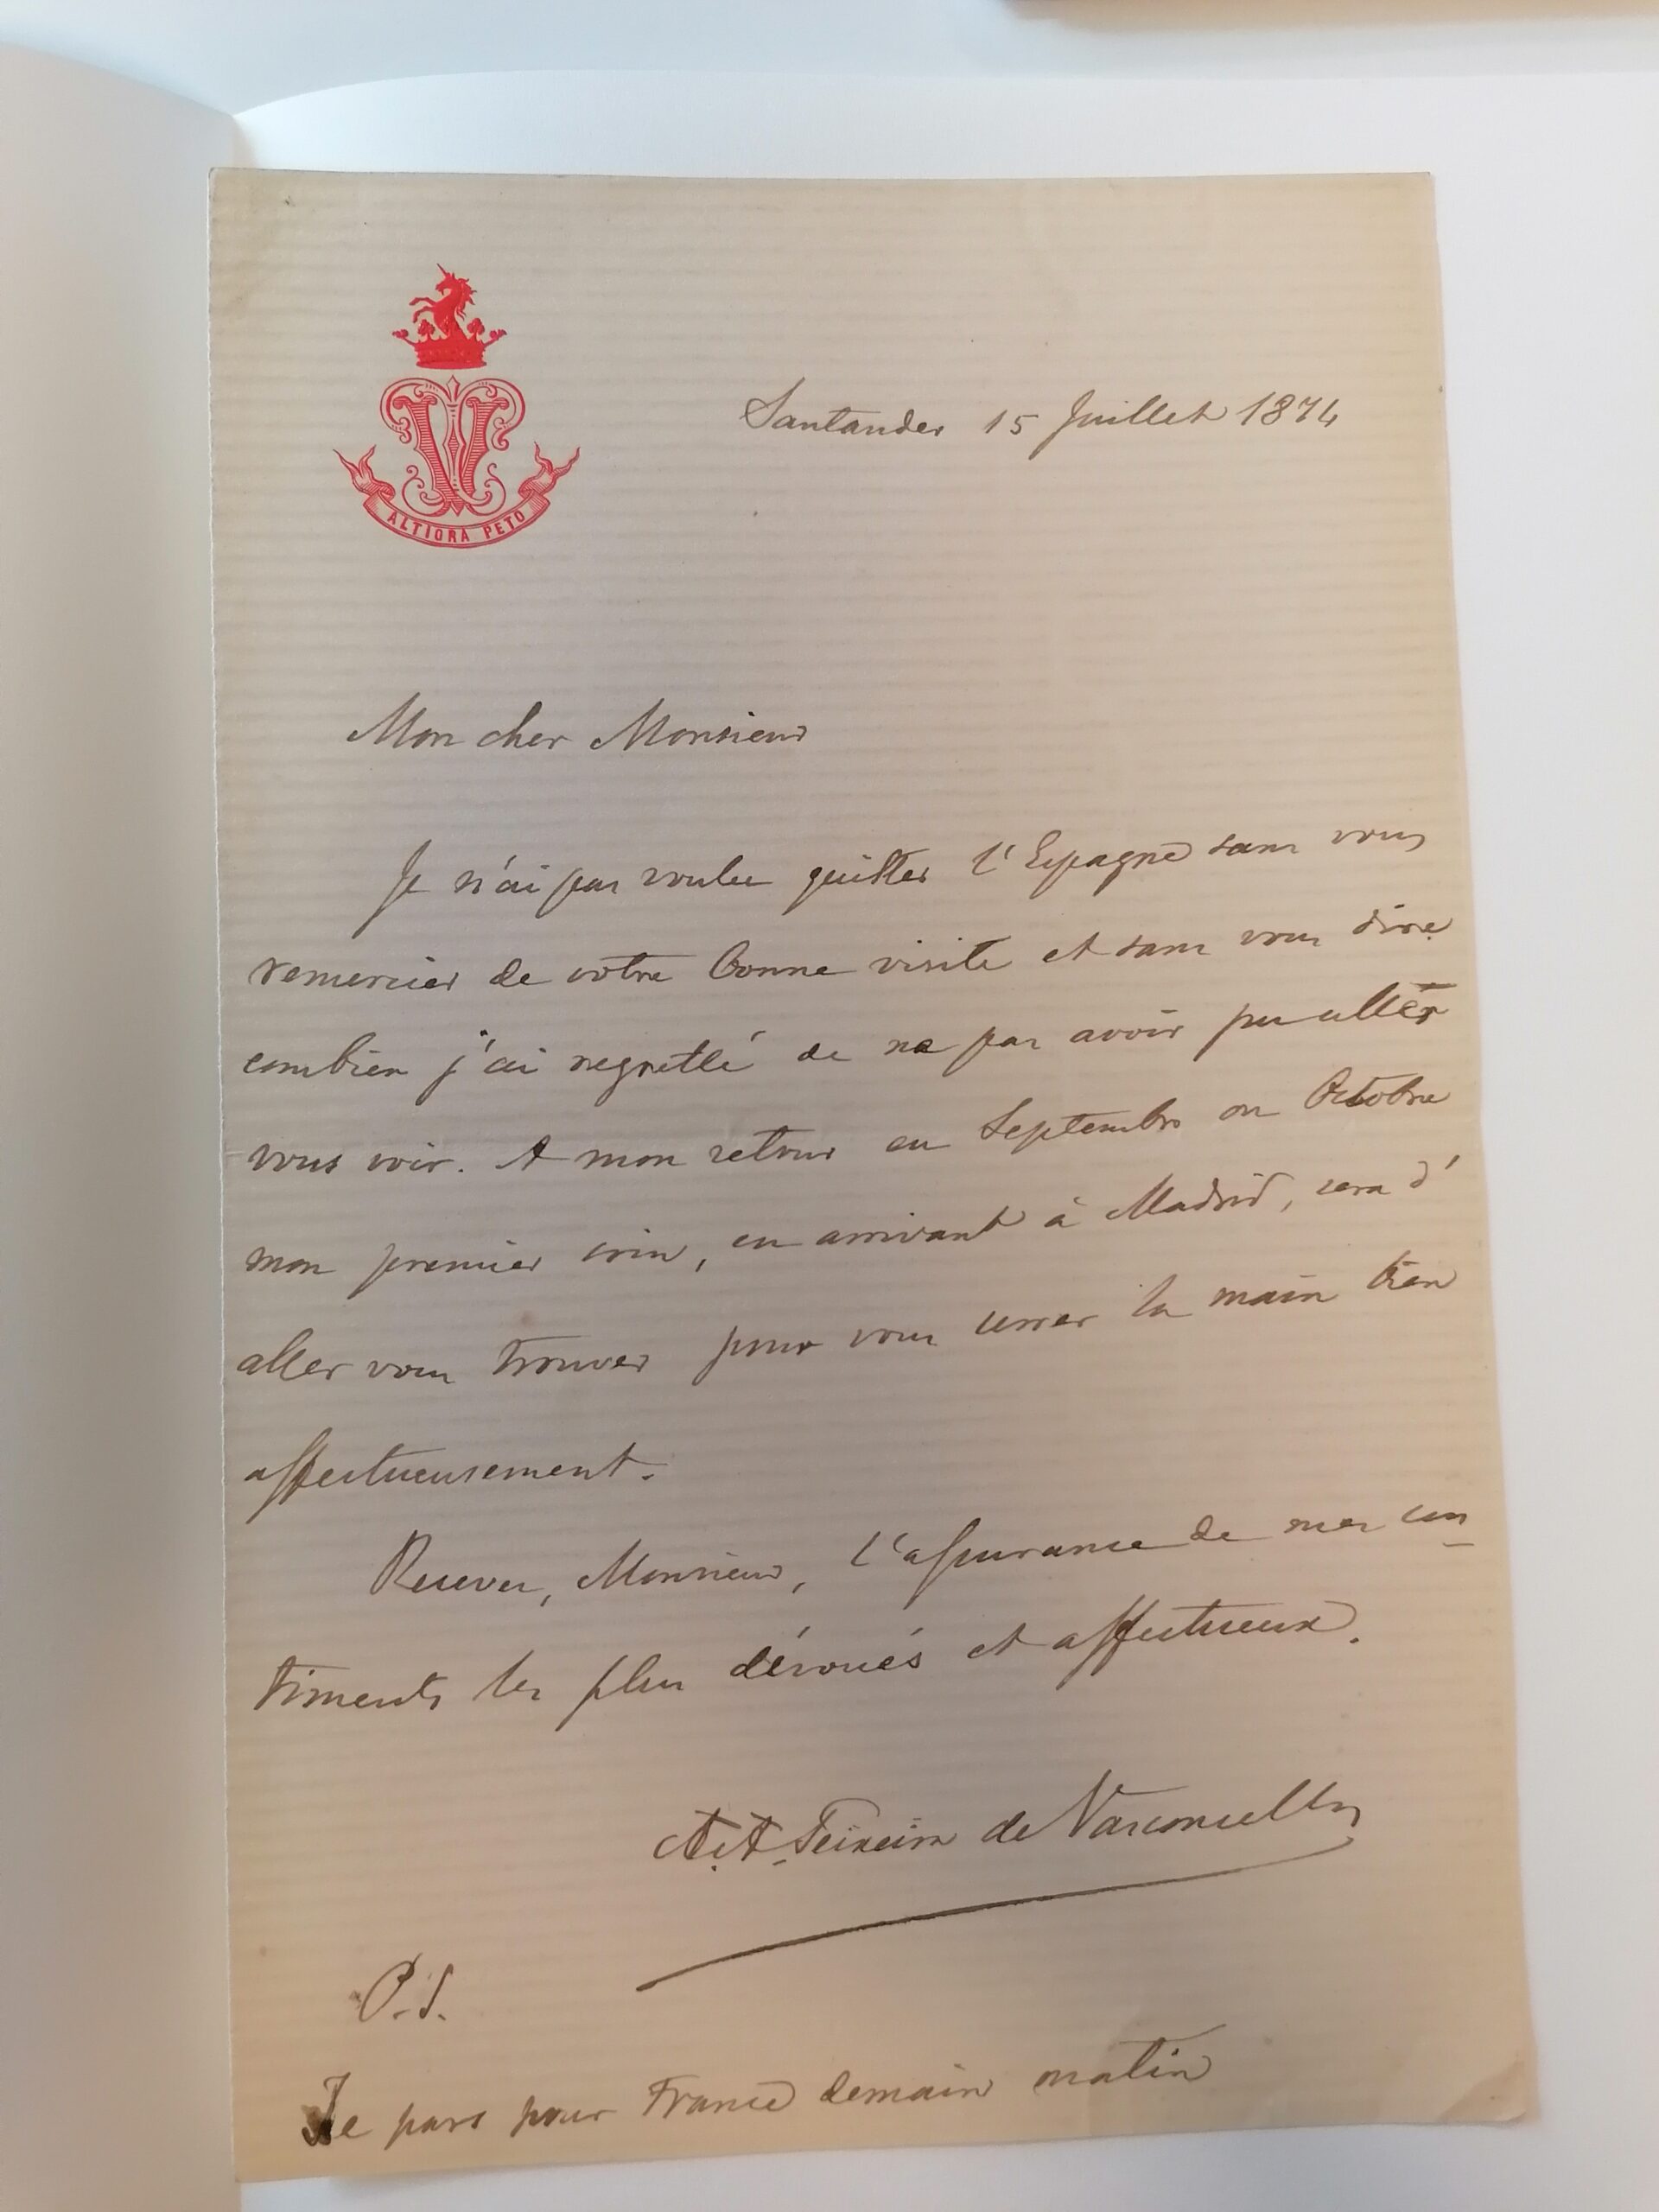 ALTIORA PETO
Santander 15 Juillet 1874
Mon cher Monsieur
Je n'ai pas voulu quitter l'Espagne sans vous
remercier de votre bonne visite et sans vous dire
combien j'ai regretté de ne pas avoir pu aller
vous voir. A mon retour en Septembre ou Octobre
mon premier soin, en arrivant à Madrid, sera d'
aller vous trouver pour vous serrer la main bien
affectueusement.
Recevez, Monsieur, l'assurance de mes sen
timents les plus dévoués et affectueux.
A. A. Teixeira de Vasconcellos
P.S.
Je pars pour France demain matin